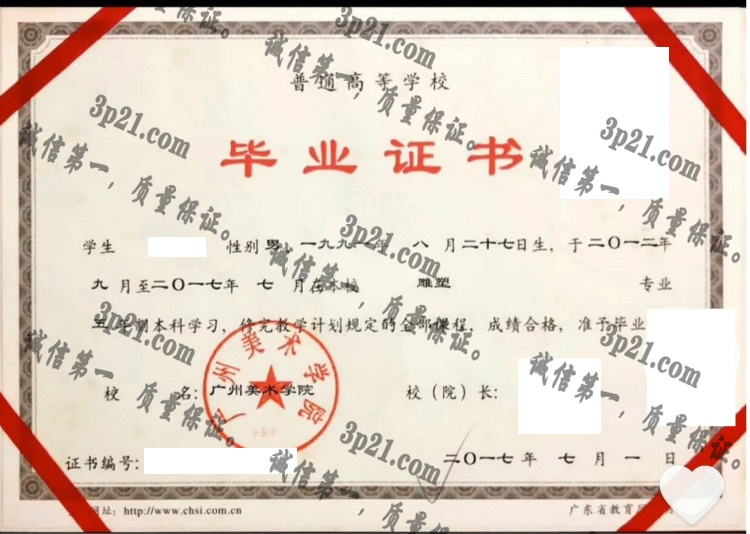 普通高等学校
毕业证书
学生 性别 男，一九九一年 八 月二十七日生，于二〇一二年
九 月至二〇一七年 七 月在本校 雕塑 专业
五 年制本科学习，修完教学计划规定的全部课程，成绩合格，准予毕业
校 名：广州美术学院 校（院）长：
广州美术学院
证书编号： 二〇一七年 七 月 一 日
网址：http://www.chsi.com.cn 广东省教育厅
3p21.com
诚信第一，质量保证。
3p21.com
诚信第一，质量保证。
3p21.com
诚信第一，质量保证。
3p21.com
诚信第一，质量保证。
3p21.com
诚信第一，质量保证。
3p21.com
诚信第一，质量保证。
3p21.com
诚信第一，质量保证。
3p21.com
诚信第一，质量保证。